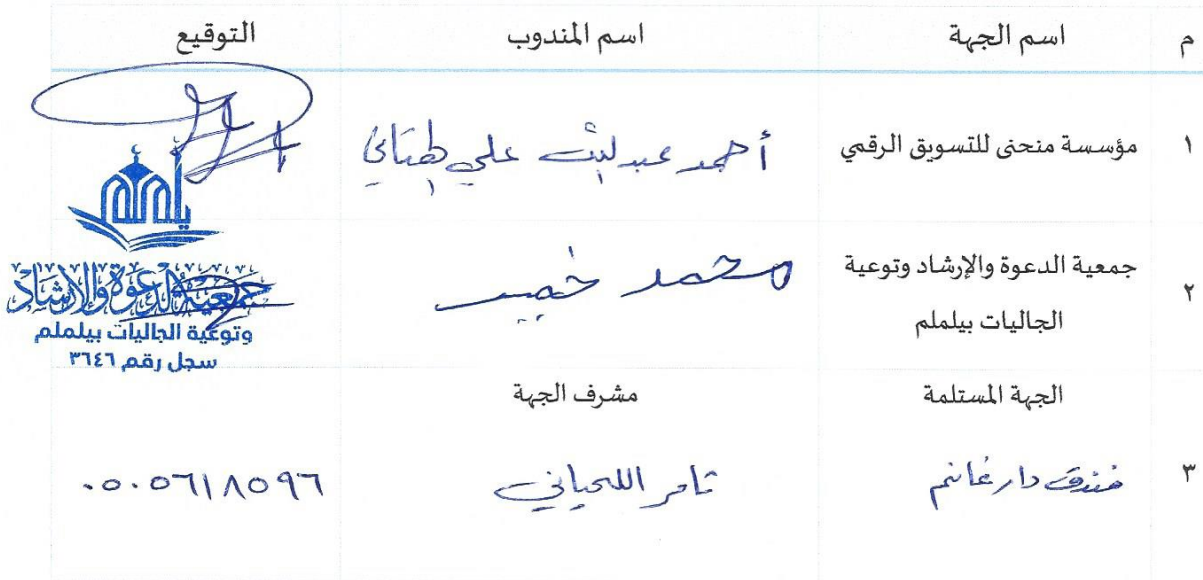 م اسم الجهة اسم المندوب التوقيع
١ مؤسسة منحنى للتسويق الرقمي أحمد عبد علي
٢ جمعية الدعوة والإرشاد وتوعية محمد خمير
الجاليات بيلملم
يلملم
جمعية الدعوة والإرشاد
وتوعية الجاليات بيلملم
سجل رقم ٣٦٤٦
الجهة المستلمة مشرف الجهة
٣ فندق دار غانم ثامر اللحياني ٠٥٠٥٦١٨٥٩٦